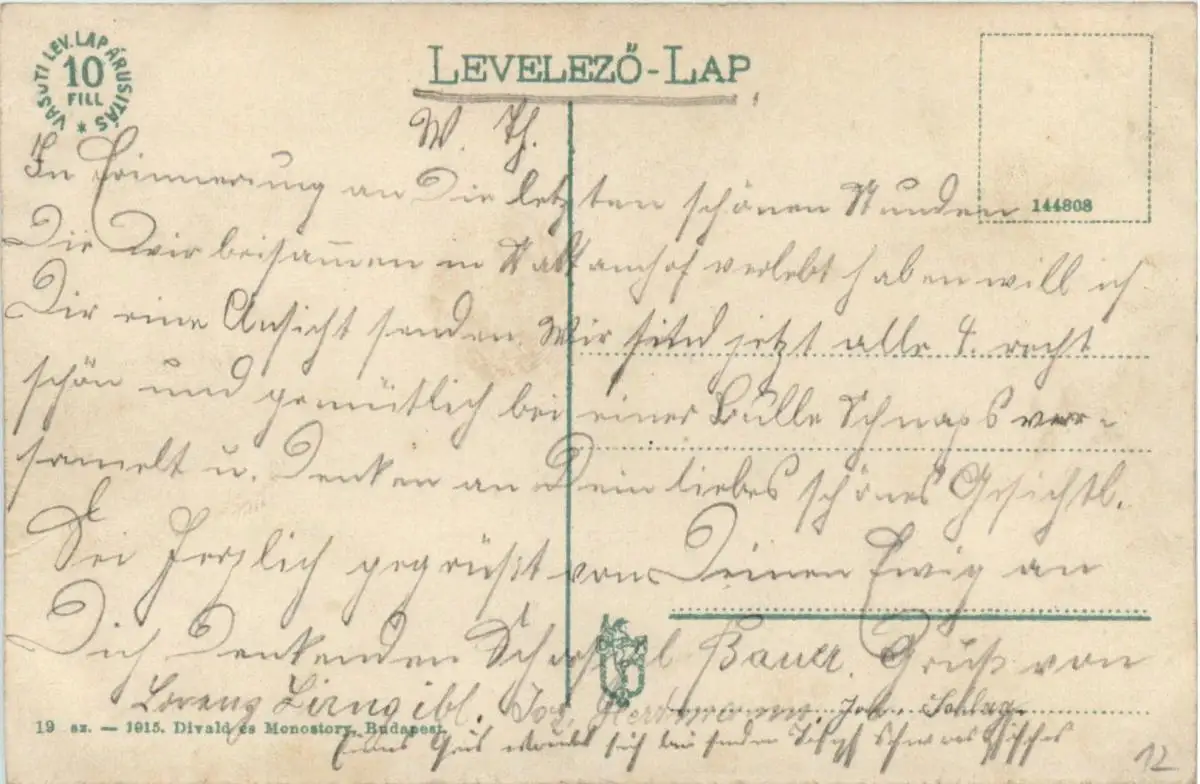 VASUTI LEV. LAP ÁRUSITÁS *
10
FILL
LEVELEZŐ-LAP
144808
W. Th.
In Erinnerung an Die letzten schönen Stunden
Die Wir beisam̅en in verlebt haben will ich
Dir eine Ansicht senden. Wir sind jetzt alle 4. recht
schön und gemütlich bei einer Bulle Schnaps ver-
samelt u. Denken an Dein liebes schönes Gesichtl.
Sei Herzlich gegrüßt von Deinen Ewig an
Dich Denkenden Bauer. Gruß von
Lorenz Lirngibl. Jos. Herrmann. Joh.
19 sz. — 1915. Divald és Monostory, Budapest.
12